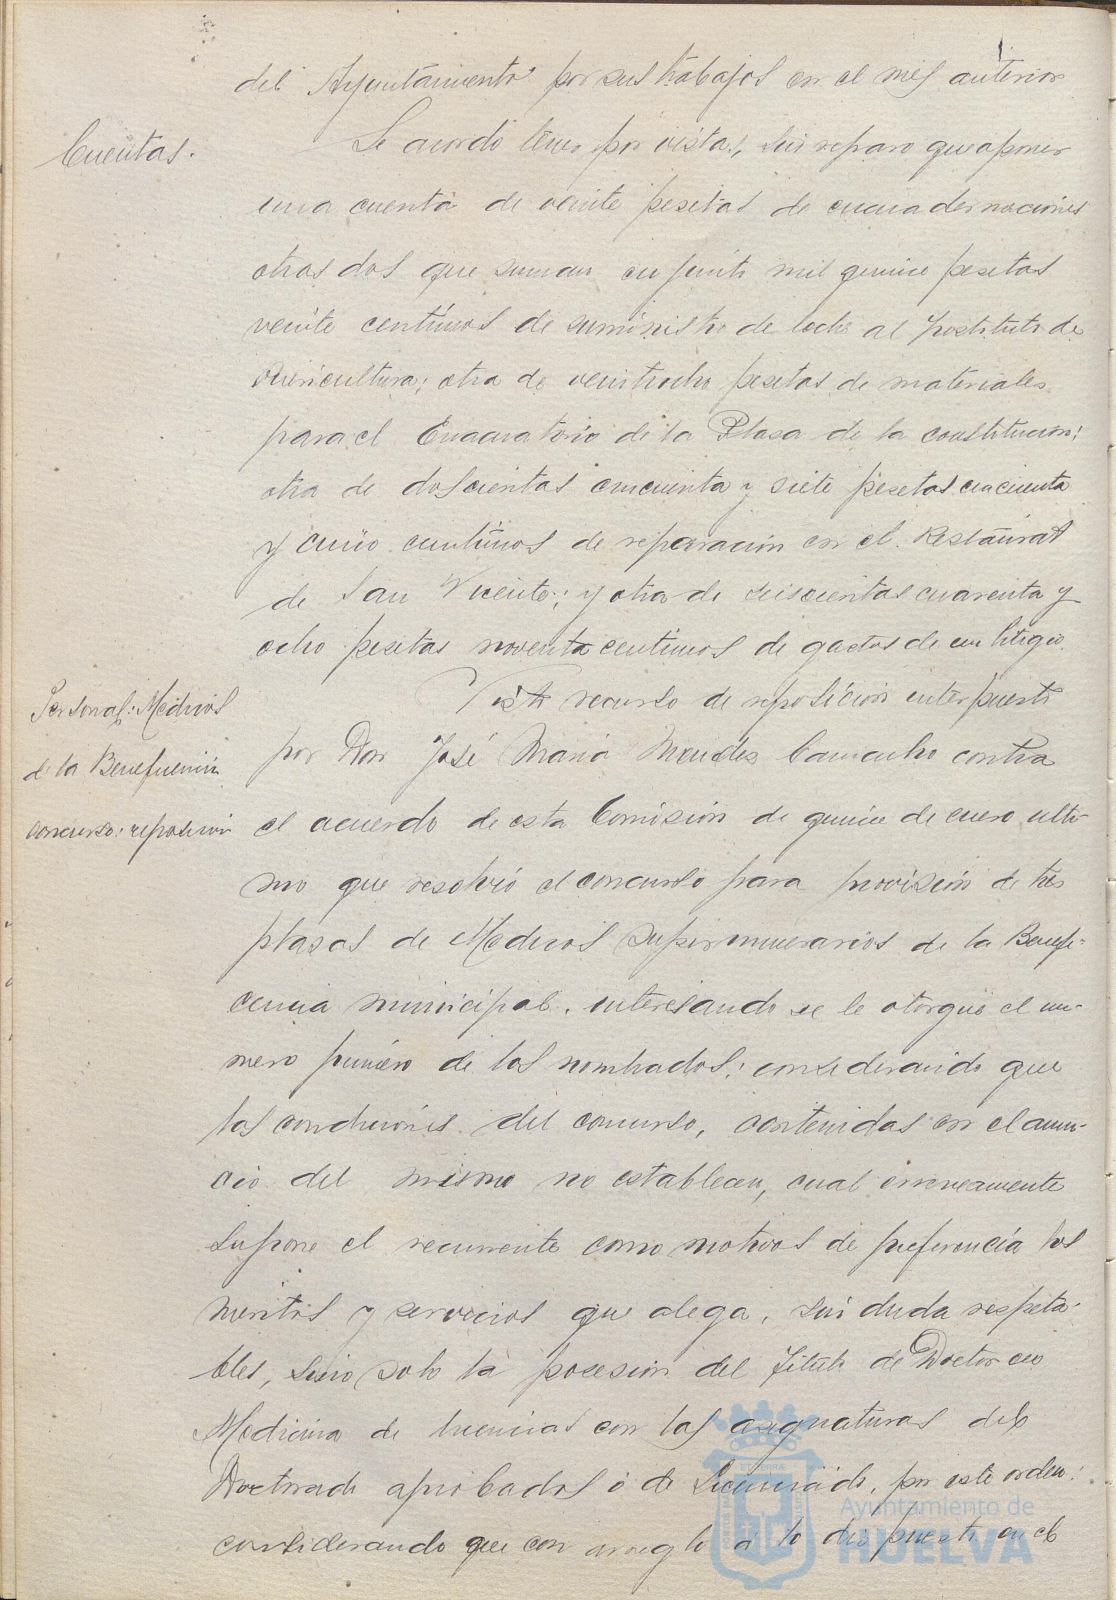 del Ayuntamiento por sus trabajos en el mes anterior
Cuentas.
Se acordó tener por vistas, sin reparo que aponer
una cuenta de veinte pesetas de encuadernaciones
otras dos que suman en junto mil quince pesetas
veinte centimos de suministro de leche al Instituto de
Puericultura; otra de veintiocho pesetas de materiales
para el Evacuatorio de la Plaza de la Constitucion;
otra de doscientas cincuenta y siete pesetas cincuenta
y cinco centimos de reparación en el Restaurat
de San Vicente; y otra de seiscientas cuarenta y
ocho pesetas noventa centimos de gastos de un litigio.
Personal: Medicos
de la Beneficencia
concurso: reposicion
Visto recurso de reposición interpuesto
por Don José Maria Mendez Camacho contra
el acuerdo de esta Comisión de quince de enero ulti-
mo que resolvió el concurso para provisión de tres
plazas de Medicos Supernumerarios de la Benefi-
cencia municipal, interesando se le otorgue el nu-
mero primero de los nombrados; considerando que
las condiciones del concurso, contenidas en el anun-
cio del mismo no establecen, cual erroneamente
supone el recurrente como motivos de preferencia los
meritos y servicios que alega, sin duda respeta-
bles, sino solo la posesion del Titulo de Doctor en
Medicina de licencias con las asignaturas del
Doctorado aprobadas ó de Licenciado, por este orden:
considerando que con arreglo a lo dispuesto en el
Ayuntamiento de
HUELVA